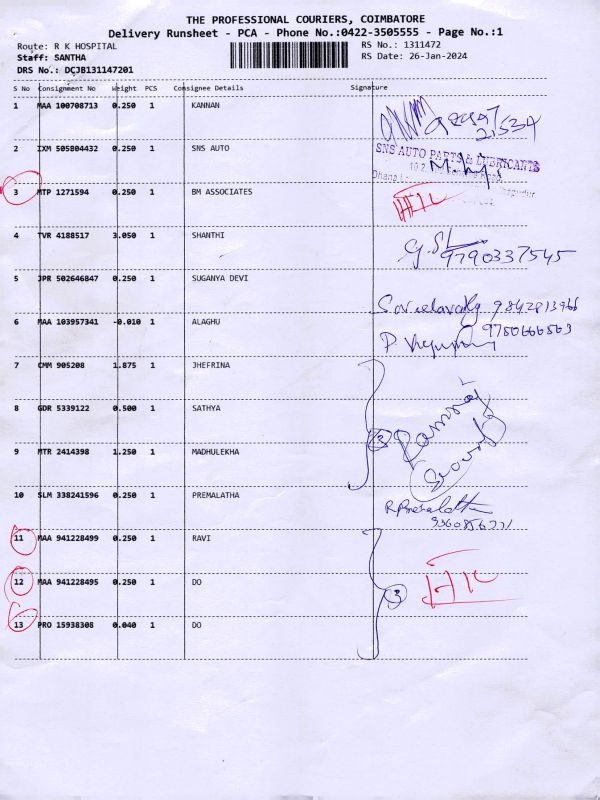 THE PROFESSIONAL COURIERS, COIMBATORE
Delivery Runsheet - PCA - Phone No.:0422-3505555 - Page No.:1
Route: R K HOSPITAL
RS No.: 1311472
Staff: SANTHA
RS Date: 26-Jan-2024
DRS No.: DCJB131147201
S No Consignment No Weight PCS Consignee Details Signature
1 MAA 100708713 0.250 1 KANNAN
2 IXM 505804432 0.250 1 SNS AUTO
SNS AUTO PARTS & LUBRICANTS
3 MTP 1271594 0.250 1 BM ASSOCIATES
4 TVR 4188517 3.050 1 SHANTHI
9790337545
5 JPR 502646847 0.250 1 SUGANYA DEVI
6 MAA 103957341 -0.010 1 ALAGHU
7 CMM 905208 1.875 1 JHEFRINA
8 GDR 5339122 0.500 1 SATHYA
9 MTR 2414398 1.250 1 MADHULEKHA
3
10 SLM 338241596 0.250 1 PREMALATHA
R.Premalatha
11 MAA 941228499 0.250 1 RAVI
12 MAA 941228495 0.250 1 DO
3
13 PRO 15938308 0.040 1 DO